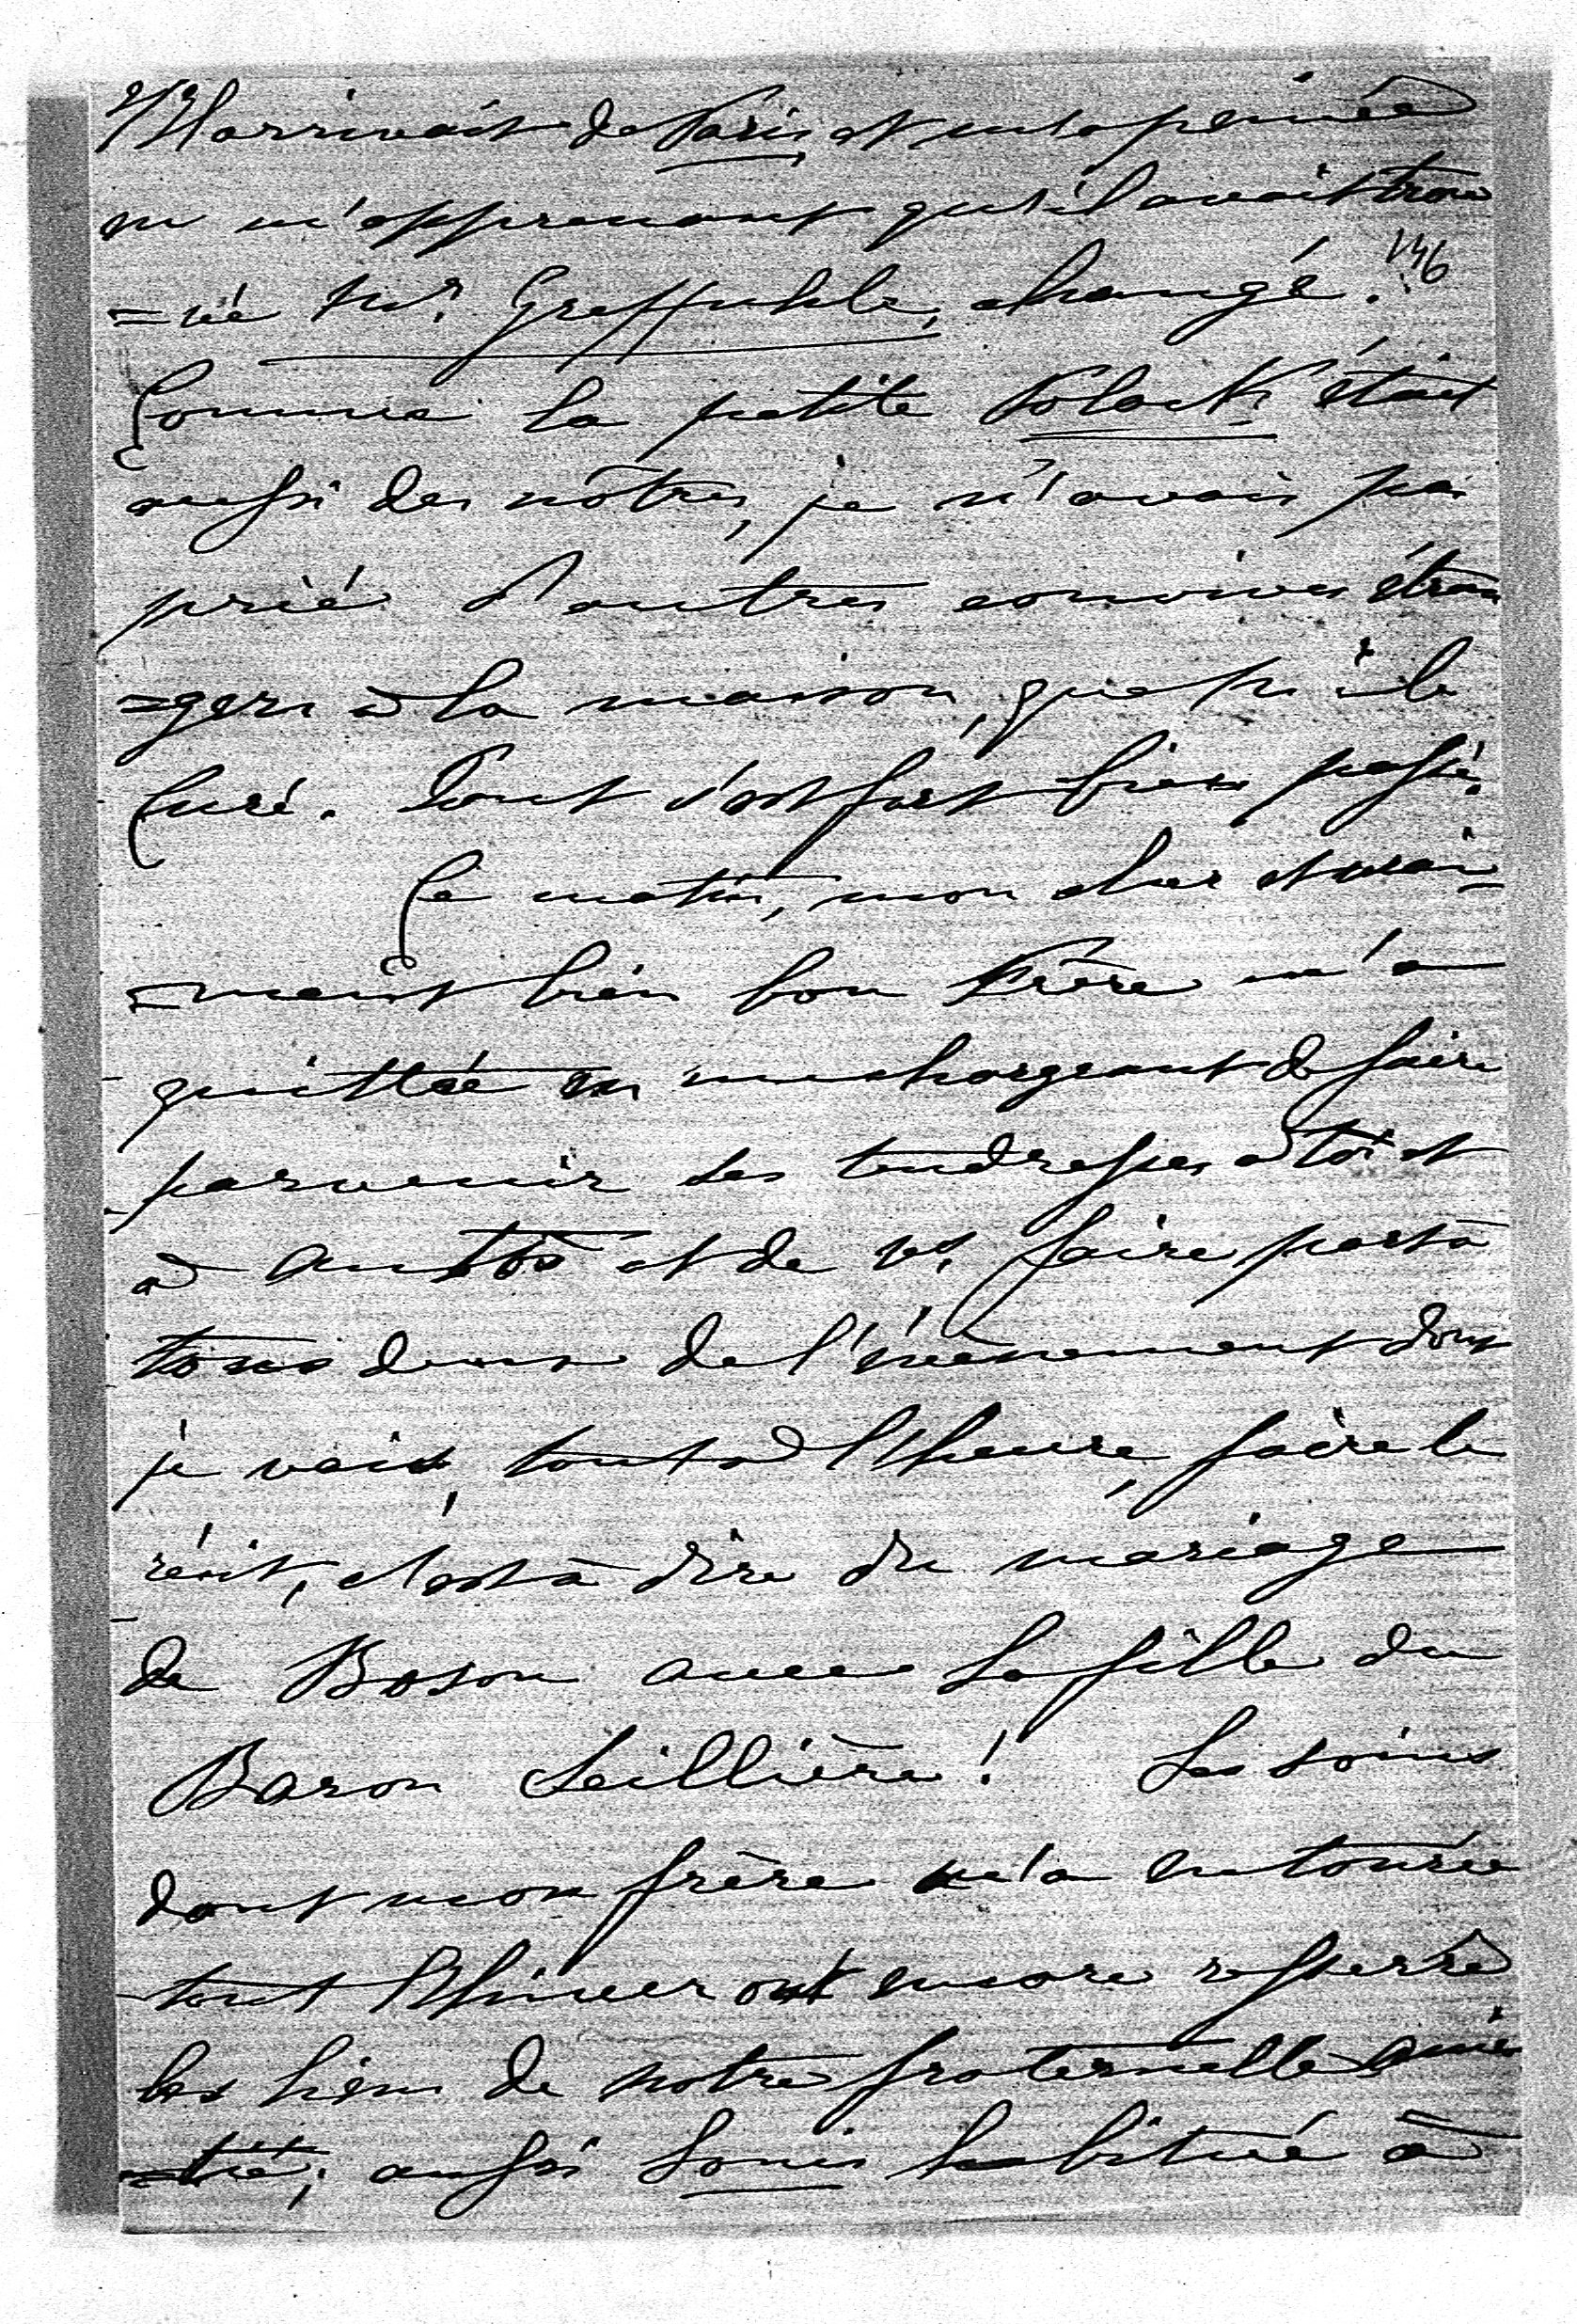 Il arrivait de Paris et m'a peinée
en m'apprenant qu'il avait trou
=vé Mr. Greffuhle, changé.
146
Comme la petite Polack était
aussi des nôtres, je n'avais pas
prié d'autres convives étran
=gers à la maison, que le
Curé. Tout s'est fort bien passé.
Ce matin, mon cher et vrai=
=ment bien bon Frère m'a
quittée en me chargeant de faire
parvenir ses tendresses à toi et
à et de vs. faire part à
tous deux de l'évènement dont
je vais, tout à l'heure, faire le
récit, c'est à dire du mariage
de Boson avec la fille du
Baron Seillière! Les soins
dont mon frère m'a entourée
tout l'hiver ont encore resserré
les liens de notre fraternelle ami
=tié, aussi Louis habitué à